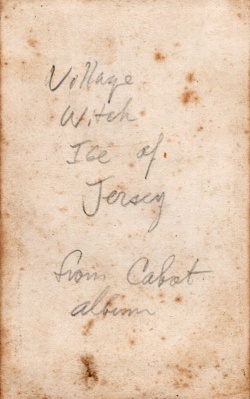 Village
Witch
Ise of
Jersey
from Cabot
album